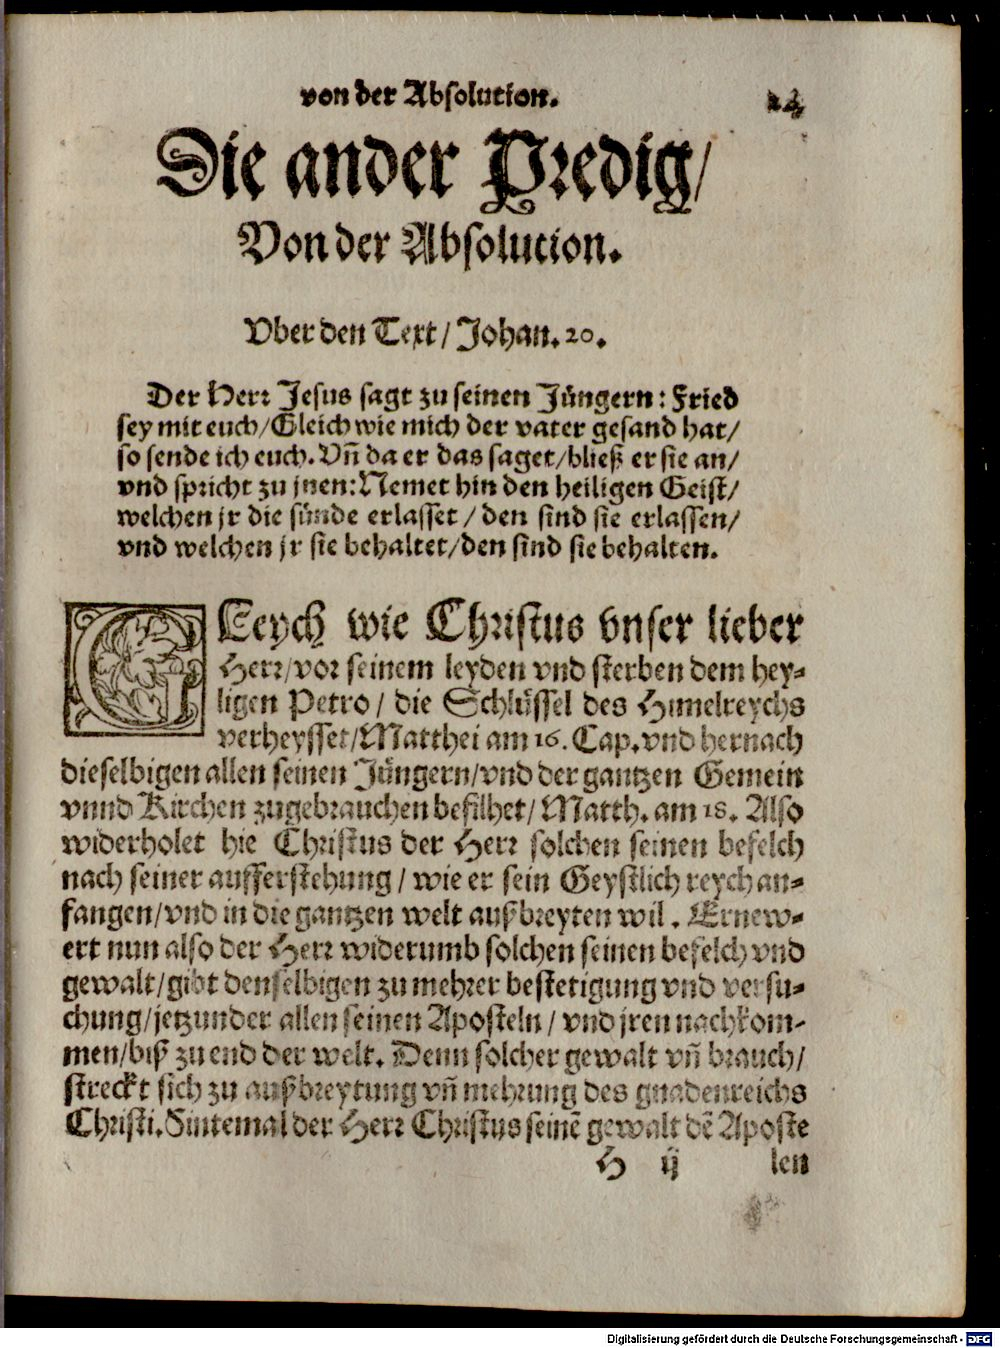 von der Absolution. 24
Die ander Predig/
Von der Absolution.
Vber den Text/ Johan. 20.
Der Herr Jesus sagt zu seinen Jüngern: Fried
sey mit euch/Gleich wie mich der vater gesand hat/
so sende ich euch. Vñ da er das saget/bließ er sie an/
vnd spricht zu jnen: Nemet hin den heiligen Geist/
welchen jr die sünde erlasset / den sind sie erlassen/
vnd welchen jr sie behaltet/den sind sie behalten.
GLeych wie Christus vnser lieber
Herr/vor seinem leyden vnd sterben dem hey-
ligen Petro / die Schlüssel des Himelreychs
verheysset/Matthei am 16. Cap. vnd hernach
dieselbigen allen seinen Jüngern/vnd der gantzen Gemein
vnnd Kirchen zugebrauchen befilhet/ Matth. am 18. Also
widerholet hie Christus der Herr solchen seinen befelch
nach seiner aufferstehung / wie er sein Geystlich reych an-
fangen/vnd in die gantzen welt außbreyten wil. Ernew-
ert nun also der Herr widerumb solchen seinen befelch vnd
gewalt/gibt denselbigen zu mehrer bestetigung vnd versu-
chung/jetzunder allen seinen Aposteln / vnd jren nachkom-
men/biß zu end der welt. Denn solcher gewalt vñ brauch/
streckt sich zu außbreytung vñ mehrung des gnadenreichs
Christi. Sintemal der Herr Christus seinē gewalt dē Aposte
H ij len
Digitalisierung gefördert durch die Deutsche Forschungsgemeinschaft - DFG